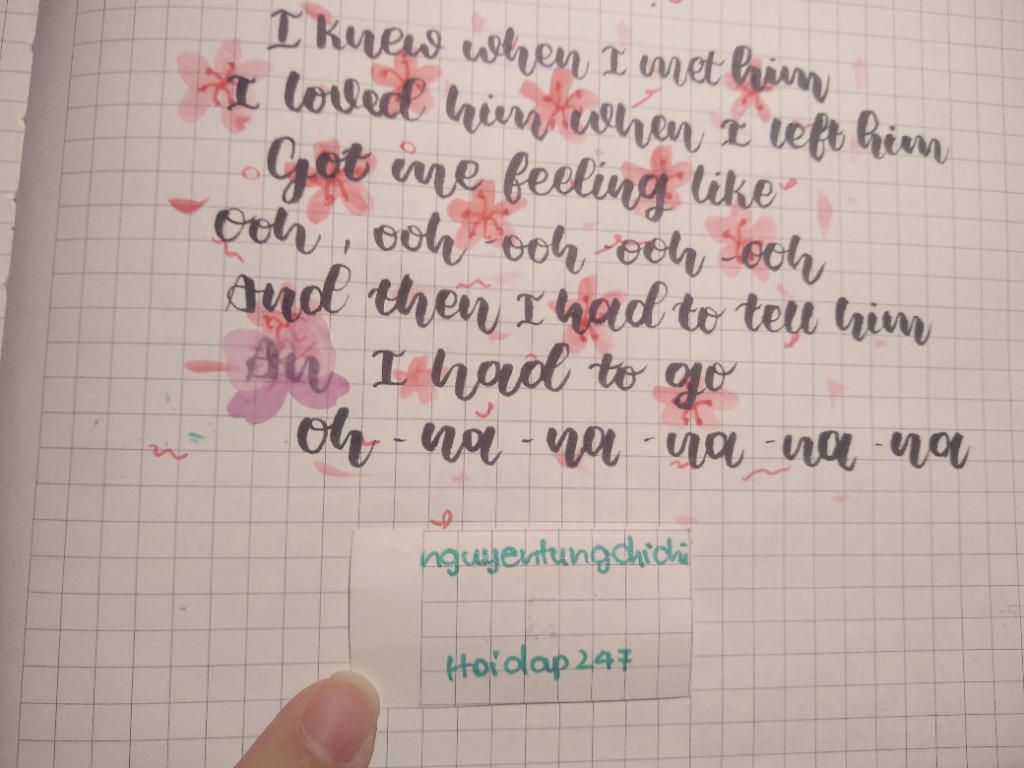 I knew when I met him
I loved him when I left him
Got me feeling like
Ooh, ooh-ooh-ooh-ooh
And then I had to tell him
An I had to go
Oh-na-na-na-na-na
nguyentungchichi
Hoidap247